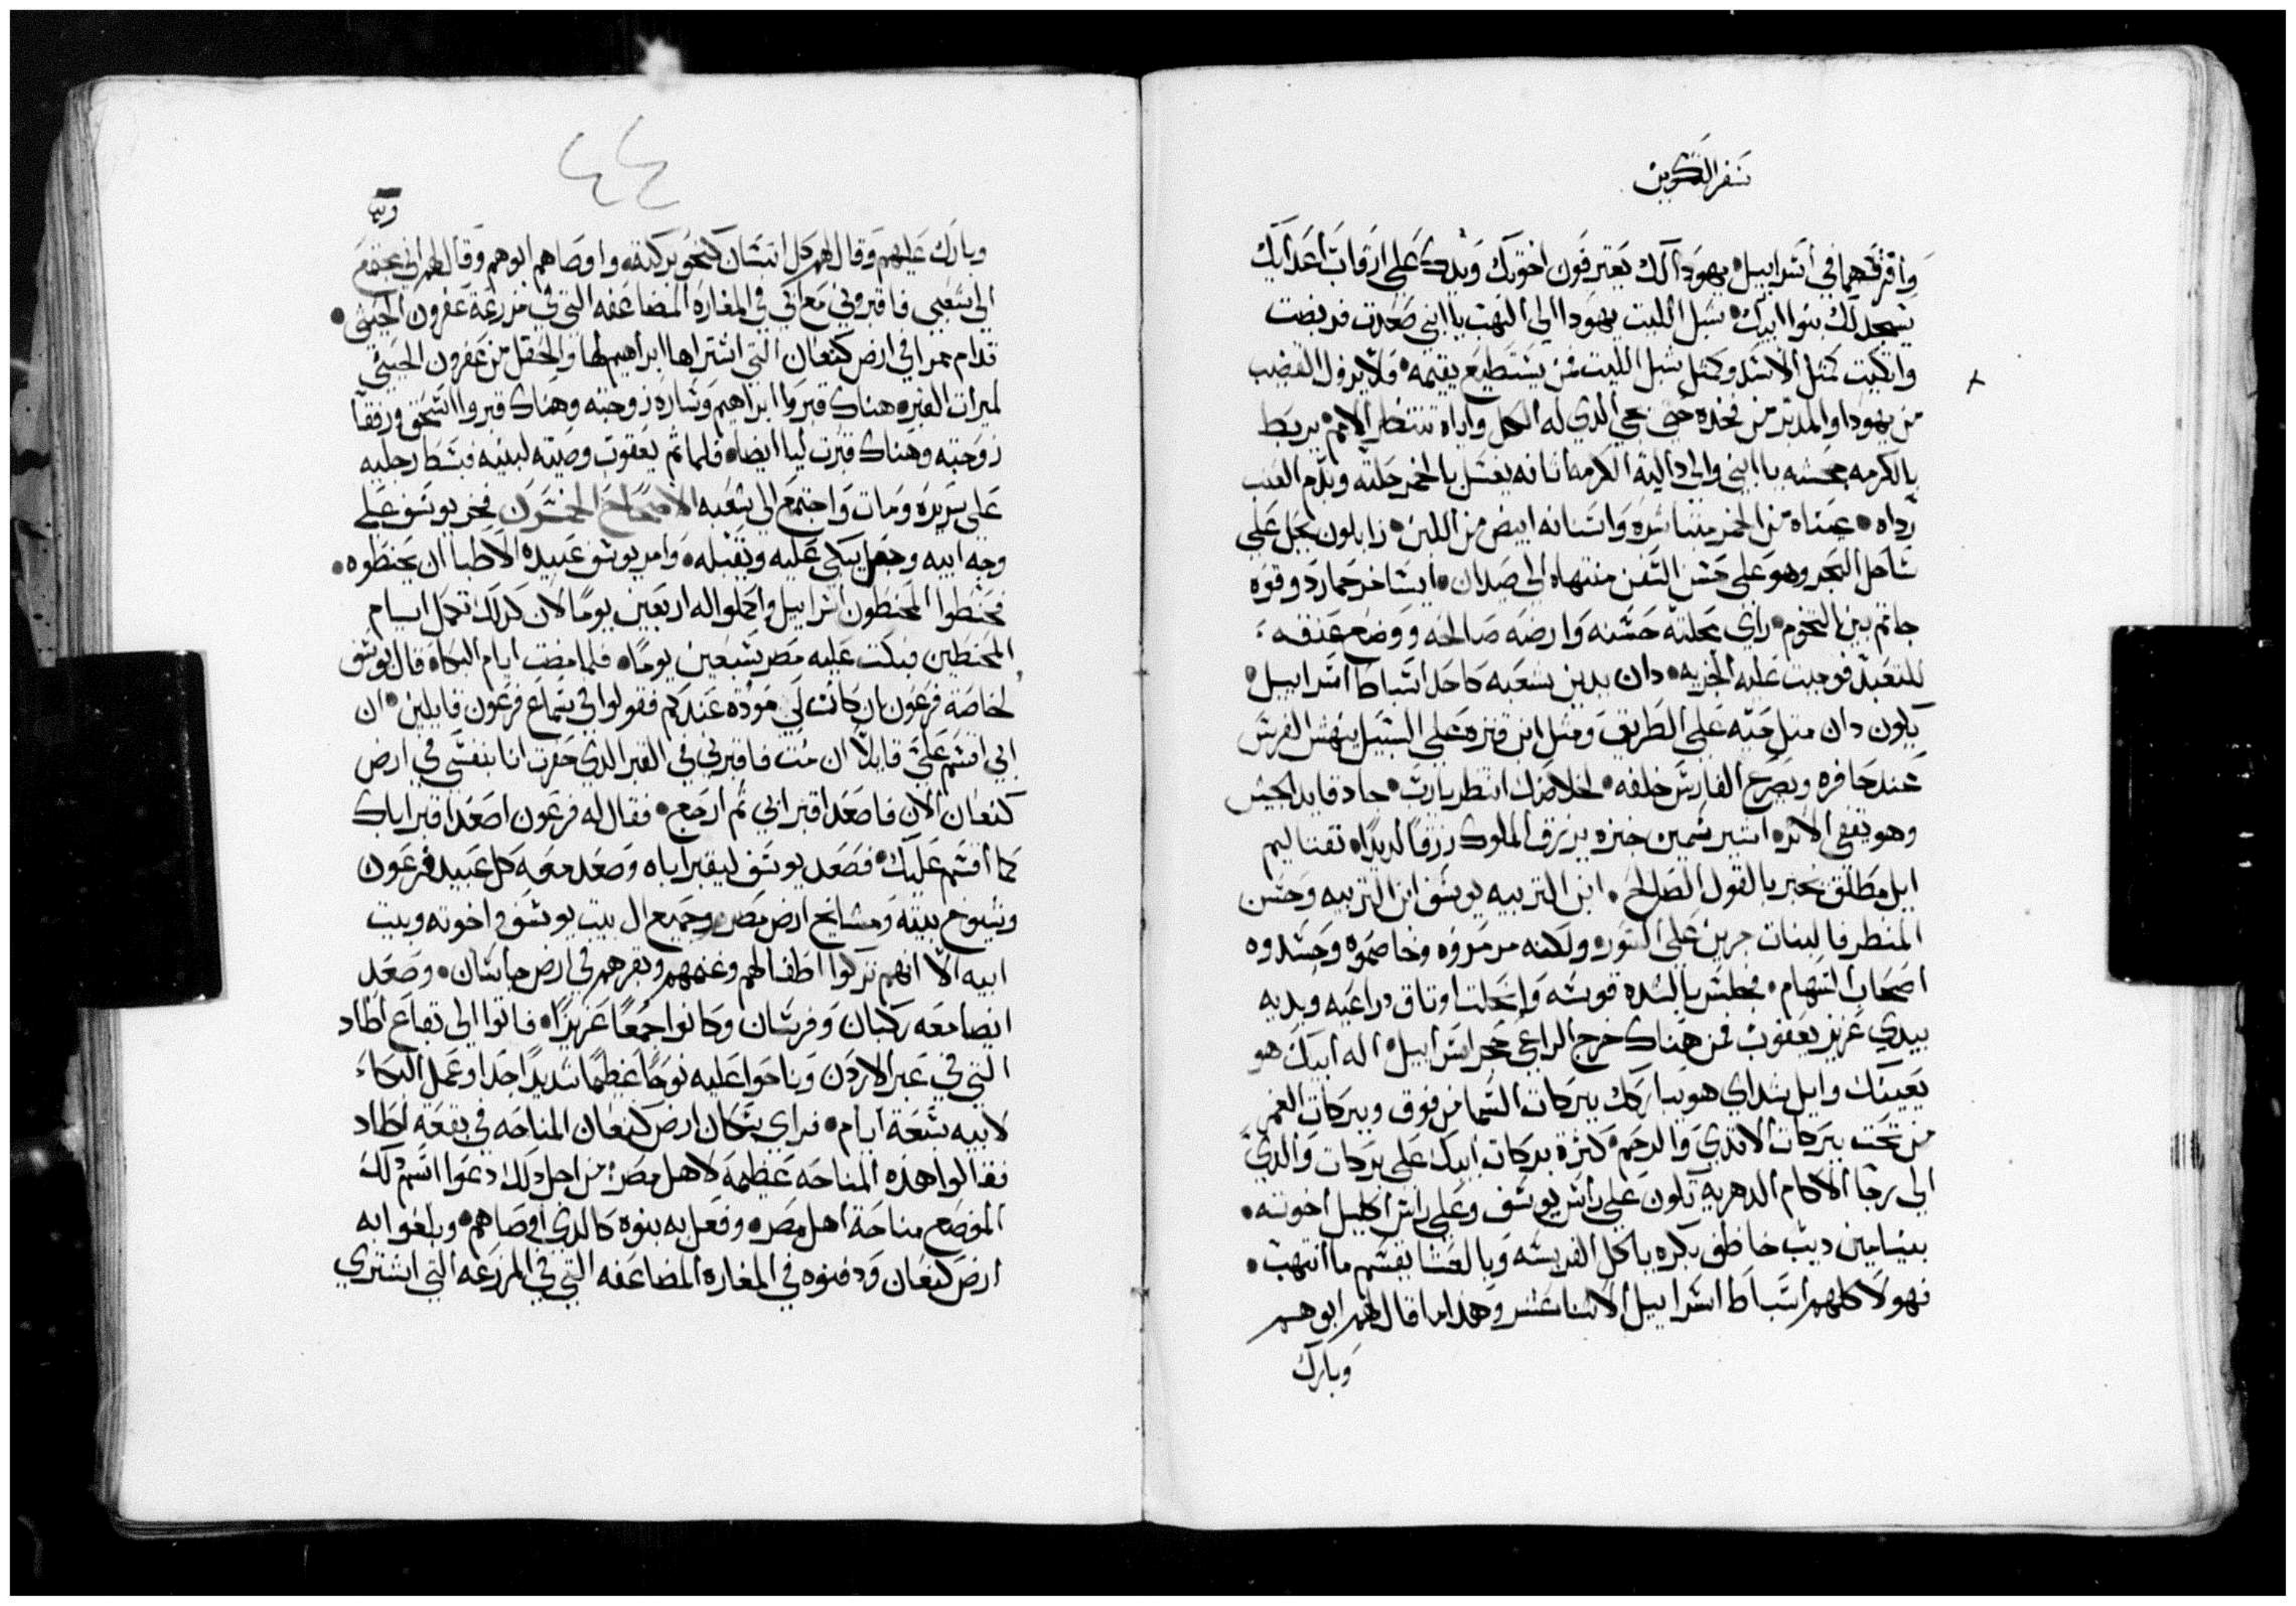 سفر التكوين
وافرقهما في اسراييل يهودا لك يعترفون اخوتك ويدك على ارقاب اعدايك
يسجد لك بنوا ابيك شبل الليت يهودا الى النهب يا ابني صعدت فربضت
واتكيت كمتل الاسد وكمتل شبل الليت فمن يستطيع يقيمه فلا يزول القضيب
من يهودا والمدبر من فخده حتى يجي الدي له الكل واياه تنتظر الامم يربط
بالكرمه جحشه يا ابني والى دالية الكرمه اتانه يغسل بالخمر حلته وبدم العنب
رداه عيناه من الخمر واسنانه ابيض من اللبن زابلون يحل على
ساحل البحر وهو على السفن منتهاه الى صيدان ايساخر حمار دو قوه
جاتم بين التخوم راي محلته حسنه وارضه صالحه ووضع عنقه
للتعبد فوجبت عليه الجزيه دان يدين شعبه كاحد اسباط اسراييل
يكون دان متل حيه على الطريق ومتل ابن قتره على السبيل ينهش الفرس
عند حافره ويصرع الفارس خلفه لخلاصك انتظر يا رب جاد قايد الجيش
وهو يقفي الاثره اشير سمين خبزه يرزق الملوك رزقا لديدا نفتاليم
ايل مطلق مخبر بالقول الصالح ابن التربيه يوسف ابن التربيه وحسن
المنظر فالبنات جرين على السور ولكنه مرمروه وخاصموه وحسدوه
اصحاب السهام فجلس بالشده قوسه وانحلت اوتاق دراعيه ويديه
بيدي عزيز يعقوب فمن هناك خرج الراعي حجر اسراييل اله ابيك هو
يعينك وايل شداي هو يباركك ببركات السما من فوق وببركات الغمر
من تحت ببركات الاتدي والرحم كثرة بركات ابيك على بركات والدي
الى رجا الاكام الدهريه تكون على راس يوسف وعلى راس اكليل اخوته
بنيامين ديب خاطف بكره ياكل الفريسه وبالعشا يقسم ما انتهب
فهولا كلهم اسباط اسراييل الاتنا عشر وهدا ما قال لهم ابوهم
وبارك
٤٤
وبارك عليهم وقال لهم كل انسان كنحو بركته واوصاهم ابوهم وقال لهم اني مجتمع
الى شعبي فاقبروني مع ابي في المغاره المضاعفه التي في مزرعة عفرون الحيتي
قدام ممرا في ارض كنعان التي اشتراها ابراهيم لها والحقل من عفرون الحيتي
لميرات القبر هناك قبروا ابراهيم وساره زوجته وهناك قبروا اسحق ورفقا
زوجته وهناك قبرت ليا ايضا فلما تم يعقوب وصيته لبنيه فبسط رجليه
على سريره ومات واجتمع الى شعبه الاصحاح الخمسون فخر يوسف على
وجه ابيه وجعل يبكي عليه ويقبله وامر يوسف عبيده الاطبا ان يحنطوه
فحنطوا المحنطون اسراييل واكملوا له اربعين يوما لان كدلك تكمل ايام
المحنطين فبكت عليه مصر سبعين يوما فلما مضت ايام البكا قال يوسف
لخاصة فرعون ان كانت لي موده عندكم فقولوا في سماع فرعون قايلين ان
ابي اقسم علي قايلا ان مت فاقبرني في القبر الدي حفرت انا بنفسي في ارض
كنعان الان فاصعد اقبر ابي تم ارجع فقال له فرعون اصعد اقبر اباك
كما اقسم عليك فصعد يوسف ليقبر اباه وصعد معه كل عبيد فرعون
وشيوخ بيته ومشايخ ارض مصر وجميع ال بيت يوسف واخوته وبيت
ابيه الا انهم تركوا اطفالهم وغنمهم وبقرهم في ارض جاسان وصعد
ايضا معه ركبان وفرسان وكانوا جمعا عزيزا فاتوا الى بقاع اطاد
التي في عبر الاردن وناحوا عليه نوحا عظيما شديدا جدا وعمل البكاء
لابيه سبعة ايام فراي سكان ارض كنعان المناحه في بقعة اطاد
فقالوا هده المناحه عظيمه لاهل مصر من اجل دلك دعوا اسم دلك
الموضع مناحة اهل مصر وفعل به بنوه كالدي اوصاهم وبلغوا به
ارض كنعان ودفنوه في المغاره المضاعفه التي في المزرعه التي اشتري